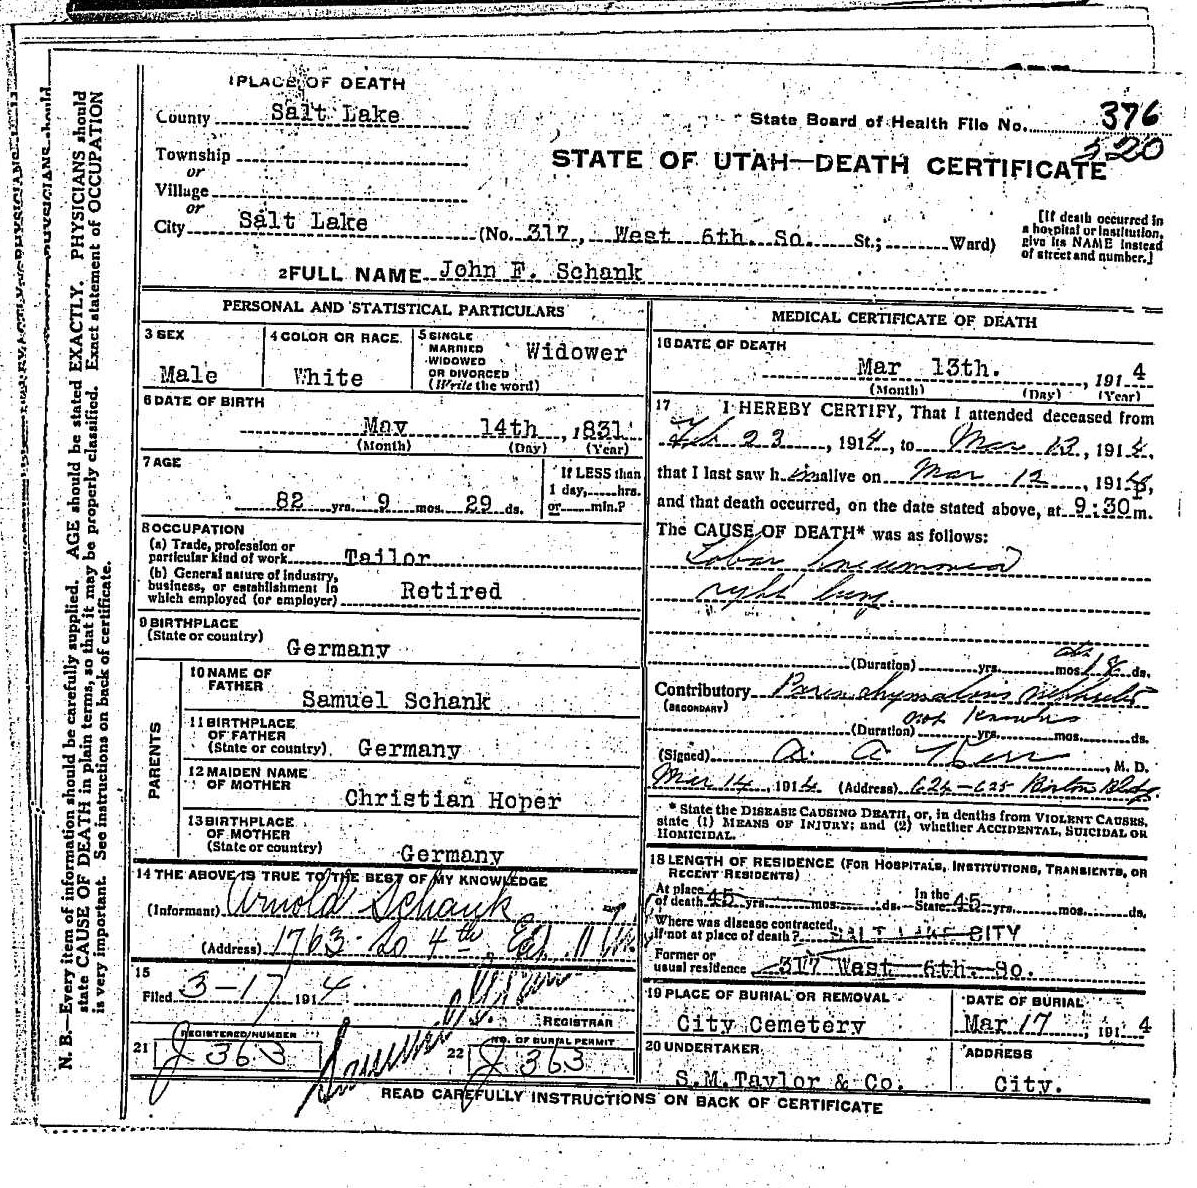 1 PLACE OF DEATH
County Salt Lake
State Board of Health File No. 376
520
Township
or
Village
or
City Salt Lake
STATE OF UTAH—DEATH CERTIFICATE
(No. 317, West 6th. So. St.; Ward)
[If death occurred in
a hospital or institution,
give its NAME instead
of street and number.]
2 FULL NAME John F. Schank
PERSONAL AND STATISTICAL PARTICULARS
3 SEX
Male
4 COLOR OR RACE
White
5 SINGLE
MARRIED
WIDOWED
OR DIVORCED
(Write the word)
Widower
6 DATE OF BIRTH
May 14th, 1831
(Month) (Day) (Year)
7 AGE
82 yrs. 9 mos. 29 ds.
If LESS than
1 day, hrs.
or min.?
8 OCCUPATION
(a) Trade, profession or
particular kind of work Tailor
(b) General nature of industry,
business, or establishment in
which employed (or employer) Retired
9 BIRTHPLACE
(State or country)
Germany
PARENTS
10 NAME OF
FATHER
Samuel Schank
11 BIRTHPLACE
OF FATHER
(State or country) Germany
12 MAIDEN NAME
OF MOTHER
Christian Hoper
13 BIRTHPLACE
OF MOTHER
(State or country)
Germany
14 THE ABOVE IS TRUE TO THE BEST OF MY KNOWLEDGE
(Informant) Arnold Schank
(Address) 1763 So 4th
15
Filed 3-17 1914
REGISTRAR
21 REGISTERED NUMBER
J 363
22 NO. OF BURIAL PERMIT
J 363
MEDICAL CERTIFICATE OF DEATH
16 DATE OF DEATH
Mar 13th. , 1914
(Month) (Day) (Year)
17 I HEREBY CERTIFY, That I attended deceased from
Feb 23, 1914, to Mar 13, 1914,
that I last saw him alive on Mar 12, 1914,
and that death occurred, on the date stated above, at 9:30 P m.
The CAUSE OF DEATH* was as follows:
Lobar Pneumonia
right lung.
(Duration) yrs. mos. 18 ds.
Contributory Parenchymatous nephritis
(SECONDARY)
not known
(Duration) yrs. mos. ds.
(Signed) A. A. Kerr, M. D.
Mar 14, 1914. (Address) 624-625 Boston Bldg.
* State the DISEASE CAUSING DEATH, or, in deaths from VIOLENT CAUSES,
state (1) MEANS OF INJURY; and (2) whether ACCIDENTAL, SUICIDAL OR
HOMICIDAL.
18 LENGTH OF RESIDENCE (FOR HOSPITALS, INSTITUTIONS, TRANSIENTS, OR
RECENT RESIDENTS)
At place
of death 45 yrs. mos. ds. In the
State 45 yrs. mos. ds.
Where was disease contracted,
if not at place of death? SALT LAKE CITY
Former or
usual residence 317 West 6th. So.
19 PLACE OF BURIAL OR REMOVAL
City Cemetery
DATE OF BURIAL
Mar 17, 1914
20 UNDERTAKER
S.M. Taylor & Co.
ADDRESS
City.
READ CAREFULLY INSTRUCTIONS ON BACK OF CERTIFICATE
N. B.—Every item of information should be carefully supplied. AGE should be stated EXACTLY. PHYSICIANS should
state CAUSE OF DEATH in plain terms, so that it may be properly classified. Exact statement of OCCUPATION
is very important. See instructions on back of certificate.